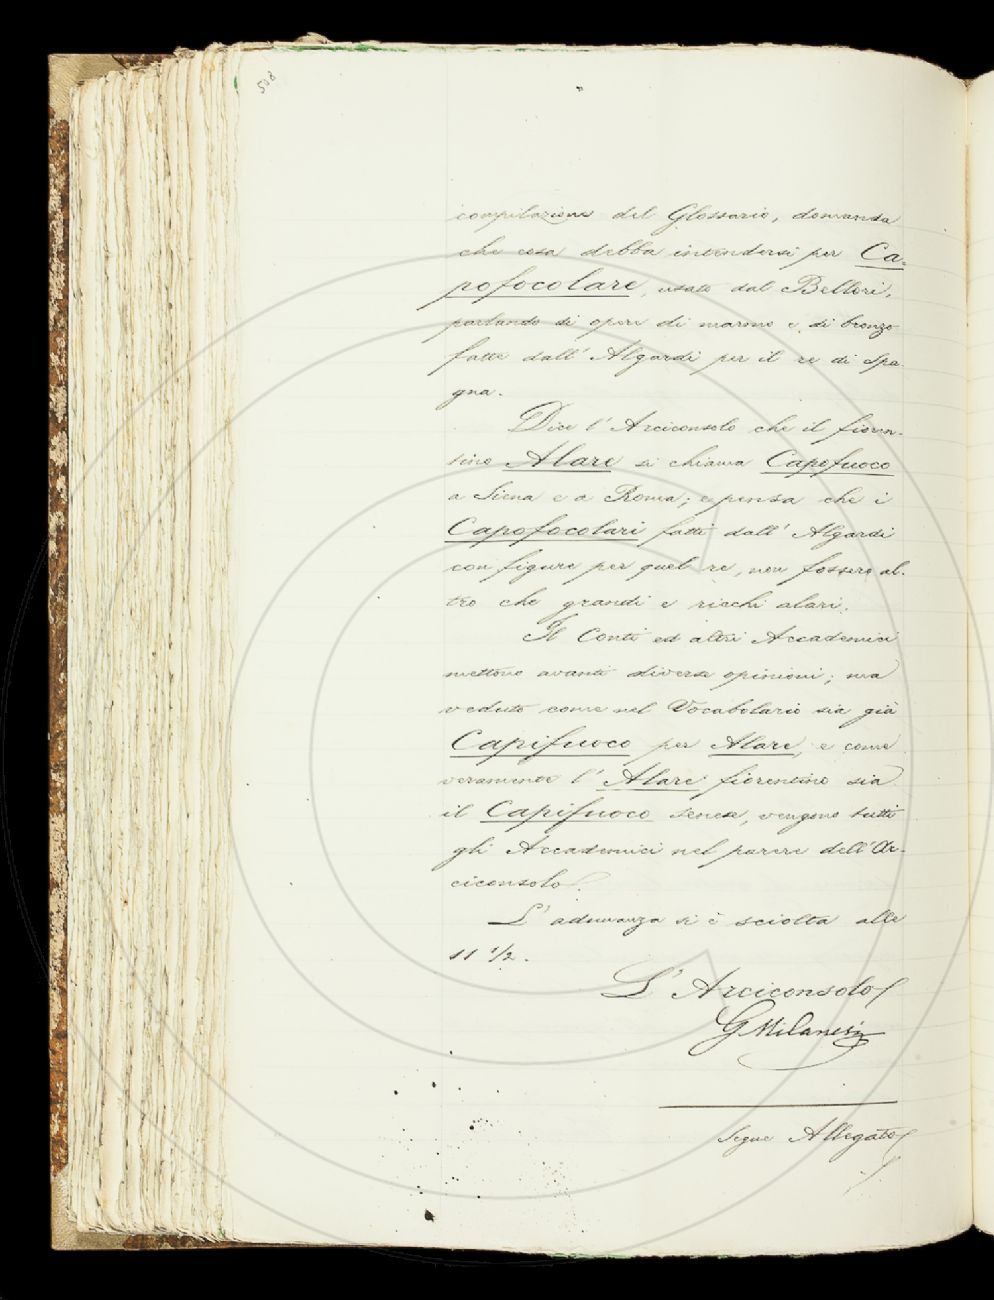 508
compilazione del Glossario, domanda
che cosa debba intendersi per Ca-
pofocolare, usato dal Bellori,
parlando di opere di marmo e di bronzo
fatte dall' Algardi per il re di Spa
gna.
Dice l' Arciconsolo che il fioren-
tino Alare si chiama Capofuoco
a Siena e a Roma; e pensa che i
Capofocolari fatti dall' Algardi
con figure per quel re, non fossero al-
tro che grandi e ricchi alari.
Il Conti ed altri Accademici
mettono avanti diverse opinioni; ma
veduto come nel Vocabolario sia già
Capifuoco per Alare, e come
veramente l' Alare fiorentino sia
il Capifuoco senese, vengono tutti
gli Accademici nel parere dell' Ar-
ciconsolo.
L' adunanza si è sciolta alle
11 1/2.
L' Arciconsolo
G Milanesi
Segue Allegato